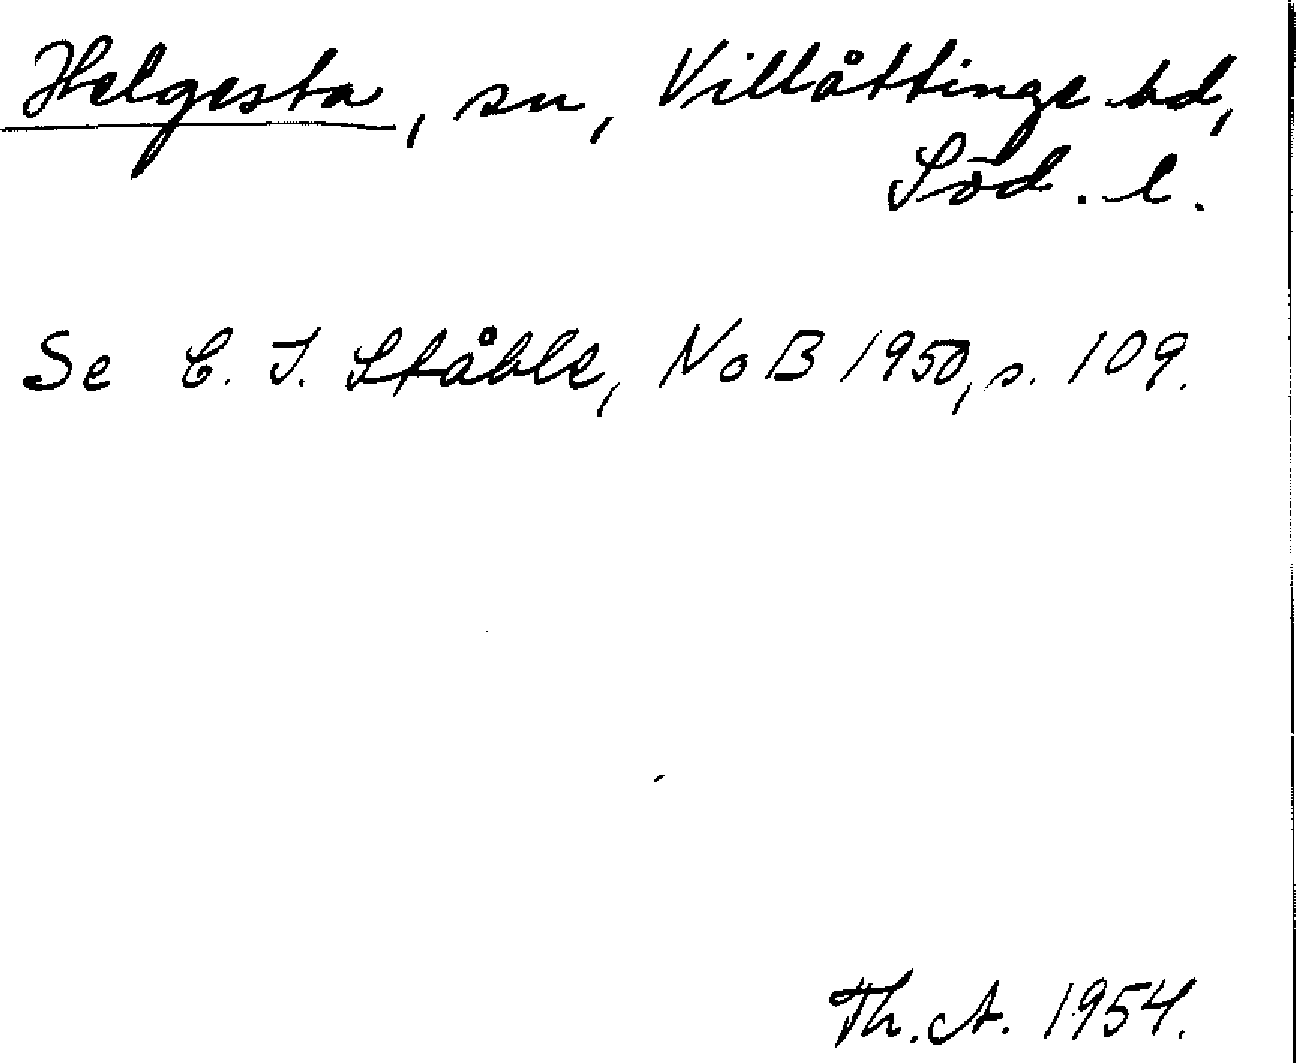 Helgesta, sn, Villåttinge hd,
Söd. l.
Se C. I. Ståhle, NoB 1950, s. 109.
Th. A. 1954.